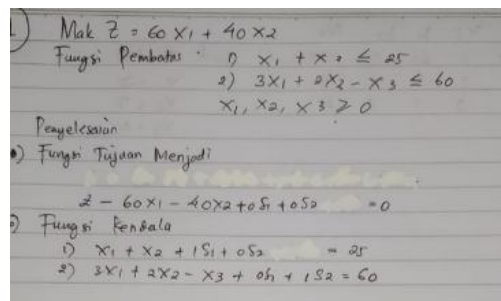 Mak Z = 60 X1 + 40 X2
Fungsi Pembatas : 1) X1 + X2 ≤ 25
2) 3X1 + 2X2 - X3 ≤ 60
X1, X2, X3 ≥ 0
Penyelesaian
) Fungsi Tujuan Menjadi
Z - 60X1 - 40X2 + 0S1 + 0S2 = 0
) Fungsi Kendala
1) X1 + X2 + 1S1 + 0S2 = 25
2) 3X1 + 2X2 - X3 + 0S1 + 1S2 = 60